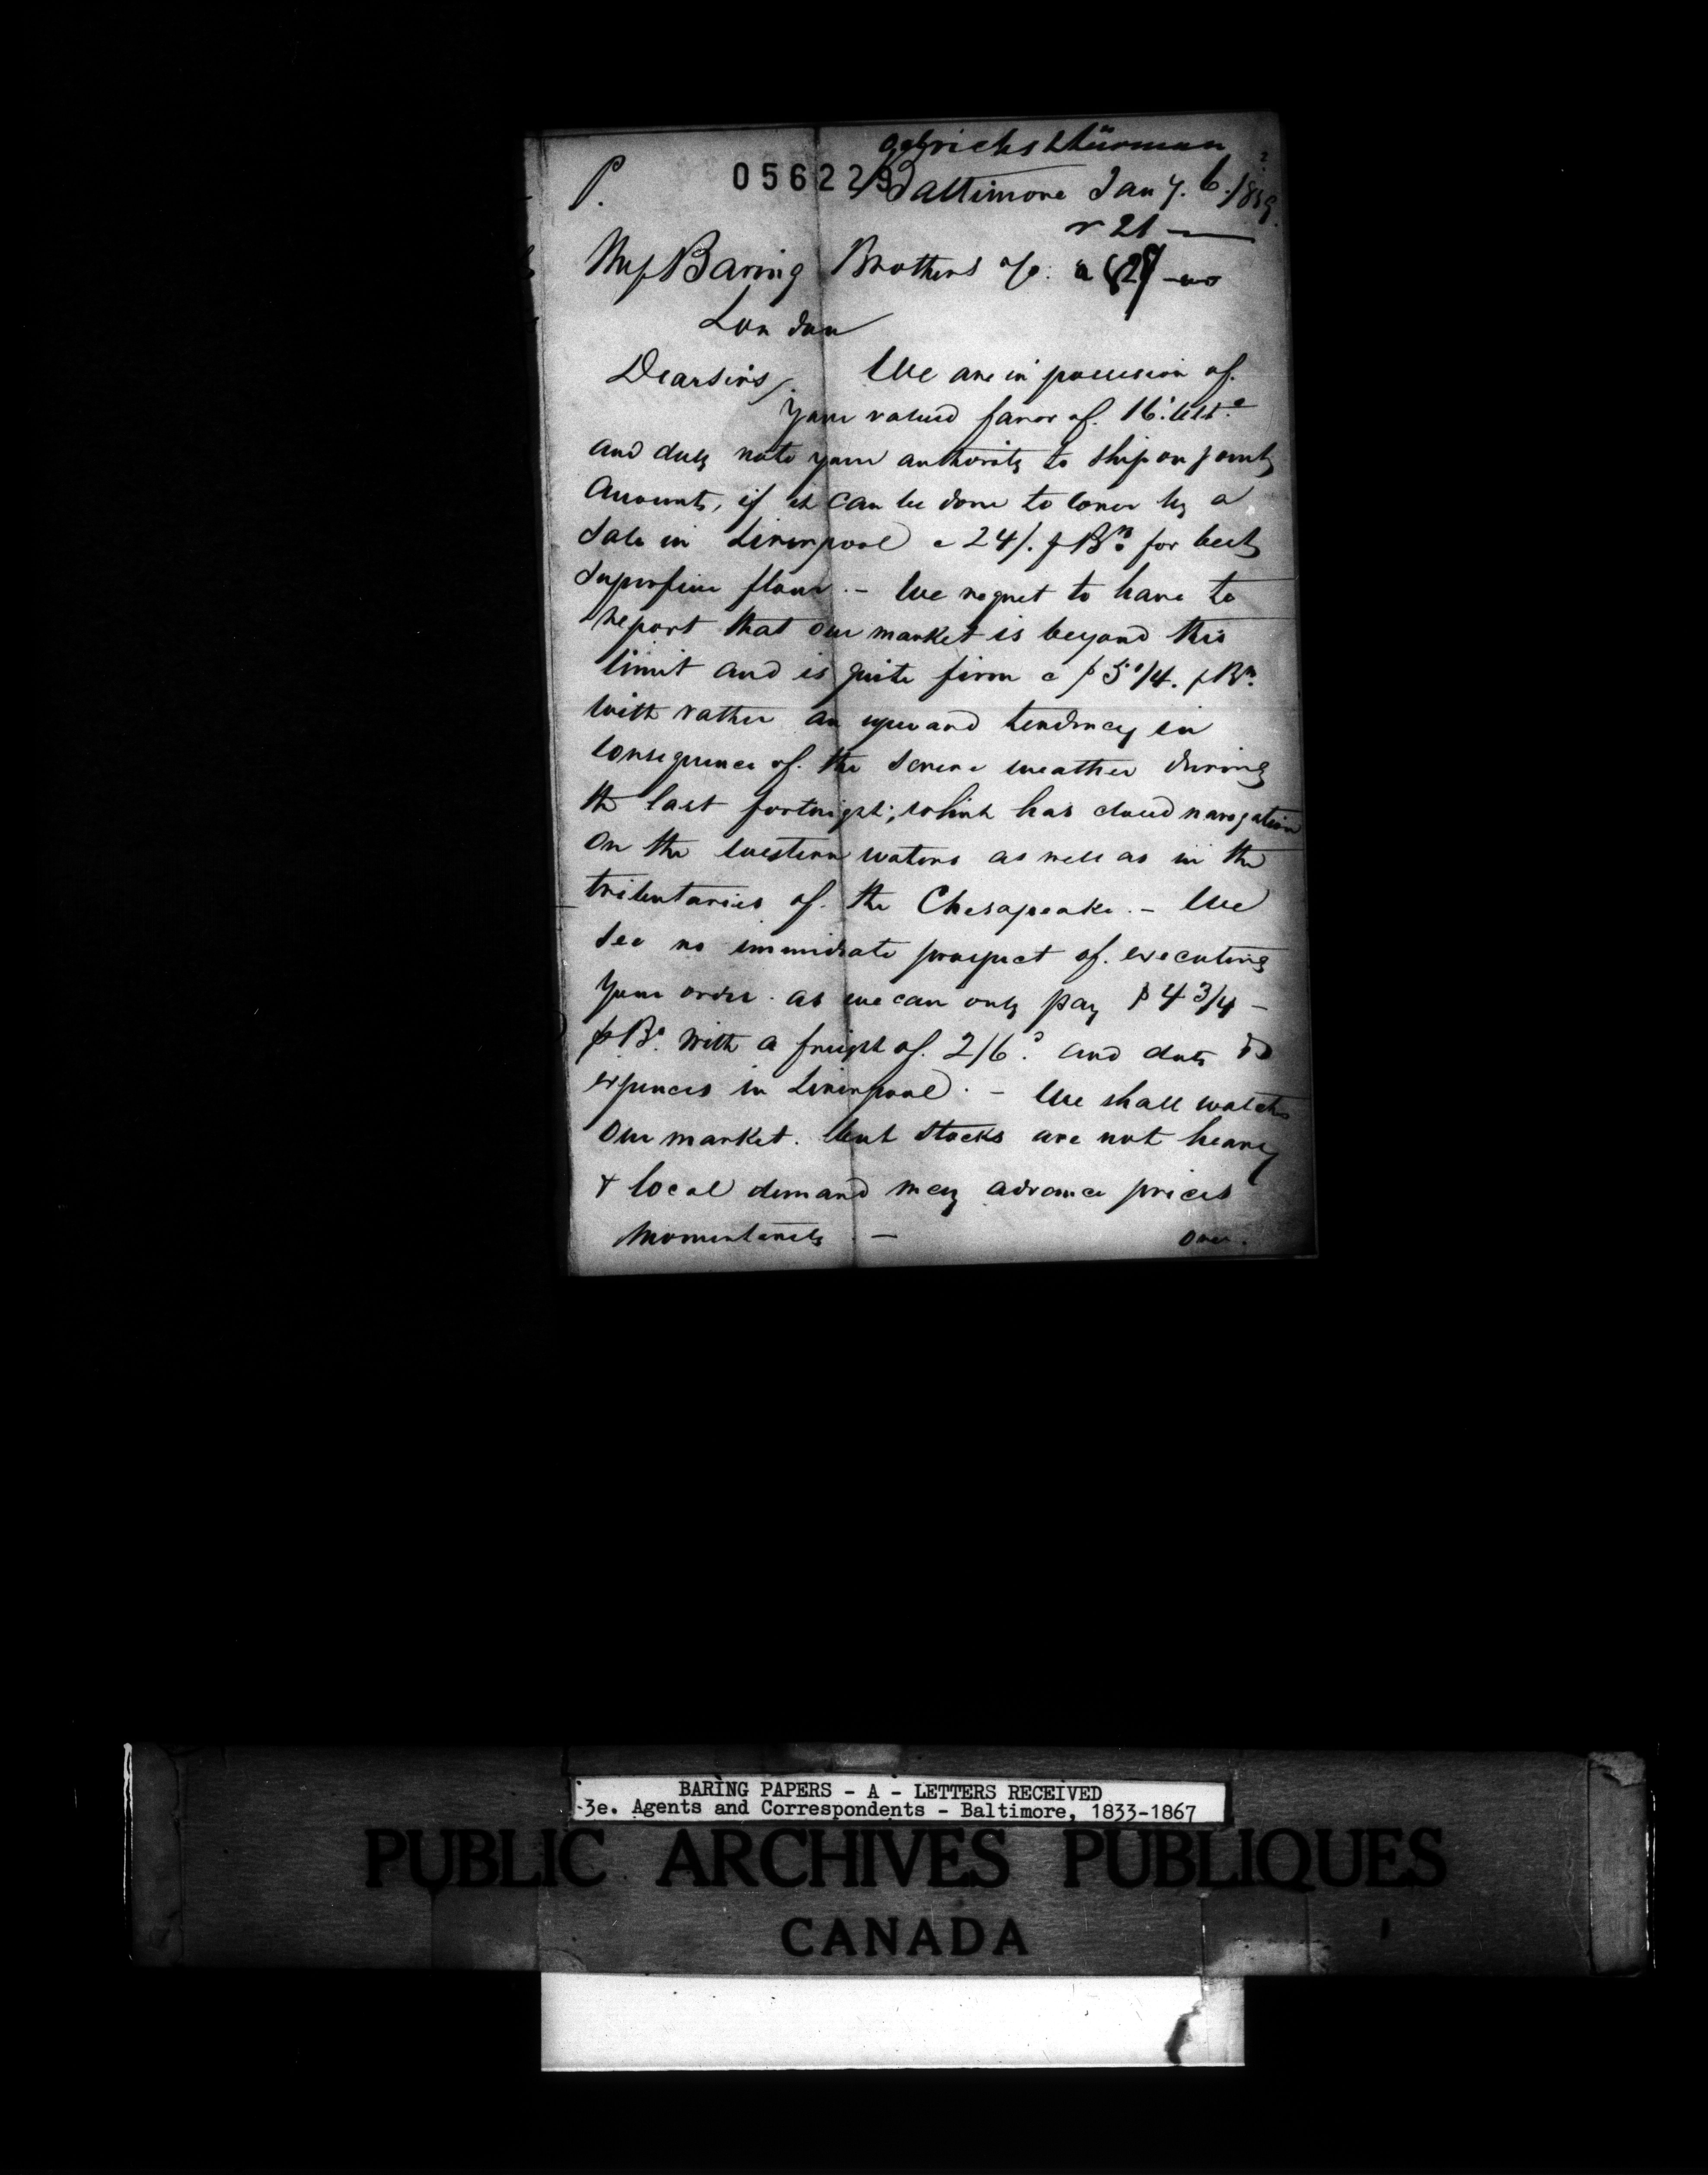 Gebrichs & Lürman
P. 056229 Baltimore Jany. 6. 1859.
r 21 —
Mess Baring Brothers & Co. a 28
London
Dear Sirs, We are in possession of
your valued favor of 16. ult.o
and duly note your authority to ship on joint
account, if it can be done to cover by a
sale in Liverpool @ 24/. p Br. for best
superfine flour. — We regret to have to
report that our market is beyond this
limit and is quite firm @ $ 5 1/4. p Br.
with rather an upward tendency in
consequence of the severe weather during
the last fortnight; which has closed navigation
on the western waters as well as in the
tributaries of the Chesapeake. — We
see no immediate prospect of executing
your order as we can only pay $ 4 3/4 —
p Br. with a freight of 2/6. and duty &
expences in Liverpool. — We shall watch
our market. but stocks are not heavy
& local demand may advance prices
momentarily. — over.
BARING PAPERS - A - LETTERS RECEIVED
3e. Agents and Correspondents - Baltimore, 1833-1867
PUBLIC ARCHIVES PUBLIQUES
CANADA